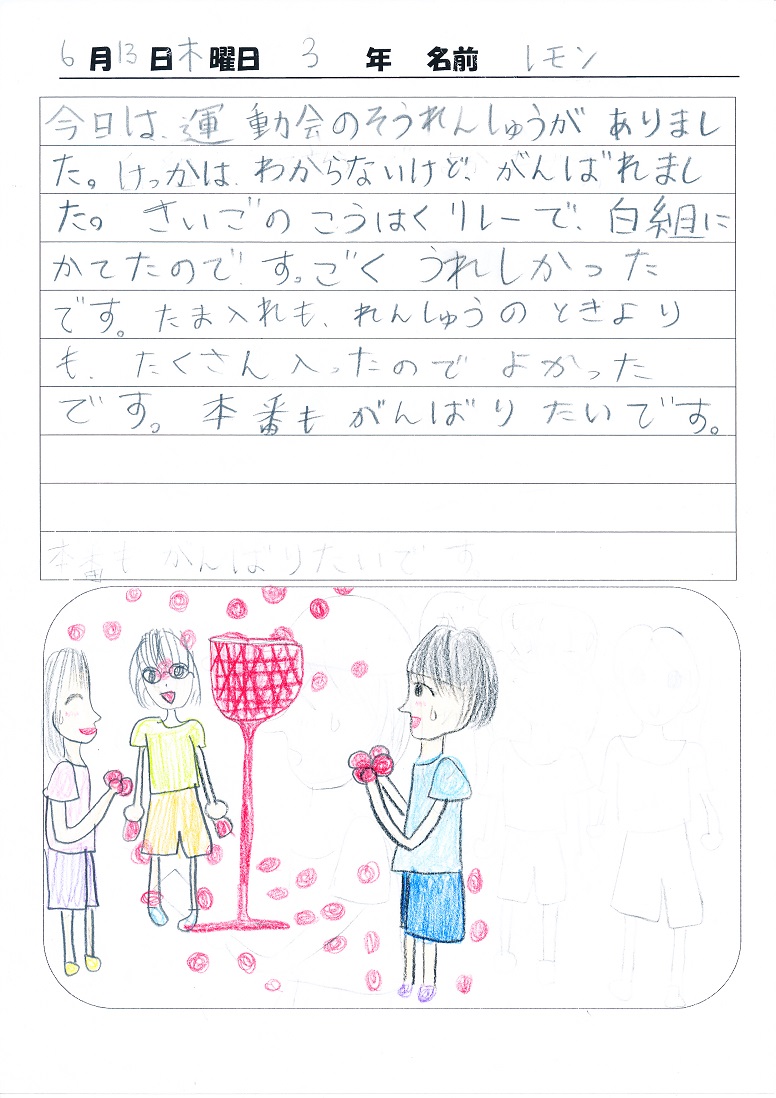 6月13日木曜日 3年 名前 レモン
今日は、運動会のそうれんしゅうが ありまし
た。けっかは、わからないけど、がんばれまし
た。さいごの こうはくリレーで、白組に
かてたので、すごく うれしかった
です。たま入れも、れんしゅうの ときより
も、たくさん入ったので よかった
です。本番も がんばり たいです。
本番も がんばりたいです